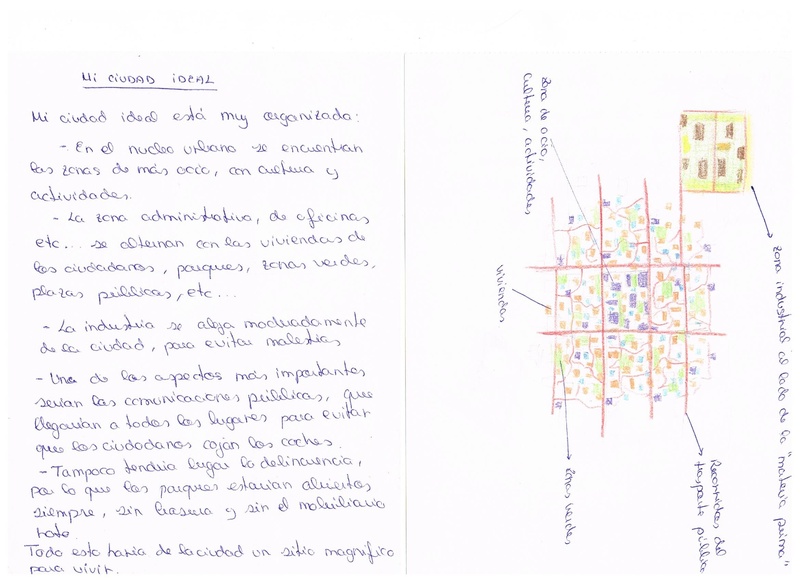 MI CIUDAD IDEAL
Mi ciudad ideal está muy organizada:
- En el nucleo urbano se encuentran
las zonas de más ocio, con cultura y
actividades.
- La zona administrativa, de oficinas
etc... se alternan con las viviendas de
los ciudadanos, parques, zonas verdes,
plazas públicas, etc...
- La industria se aleja moduadamente
de la ciudad, para evitar molestias
- Uno de los aspectos más importantes
serian las comunicaciones públicas, que
llegarian a todos los lugares para evitar
que los ciudadanos cojan los coches.
- Tampoco tendria lugar la delincuencia,
por lo que los parques estarian abiertos
siempre, sin basura y sin el mobiliario
roto.
Todo esto haria de la ciudad un sitio magnifico
para vivir.
zona de ocio,
cultura, actividades
viviendas
zonas verdes
Recorridos del
trasporte público
zona industrial al lado de la "materia prima"